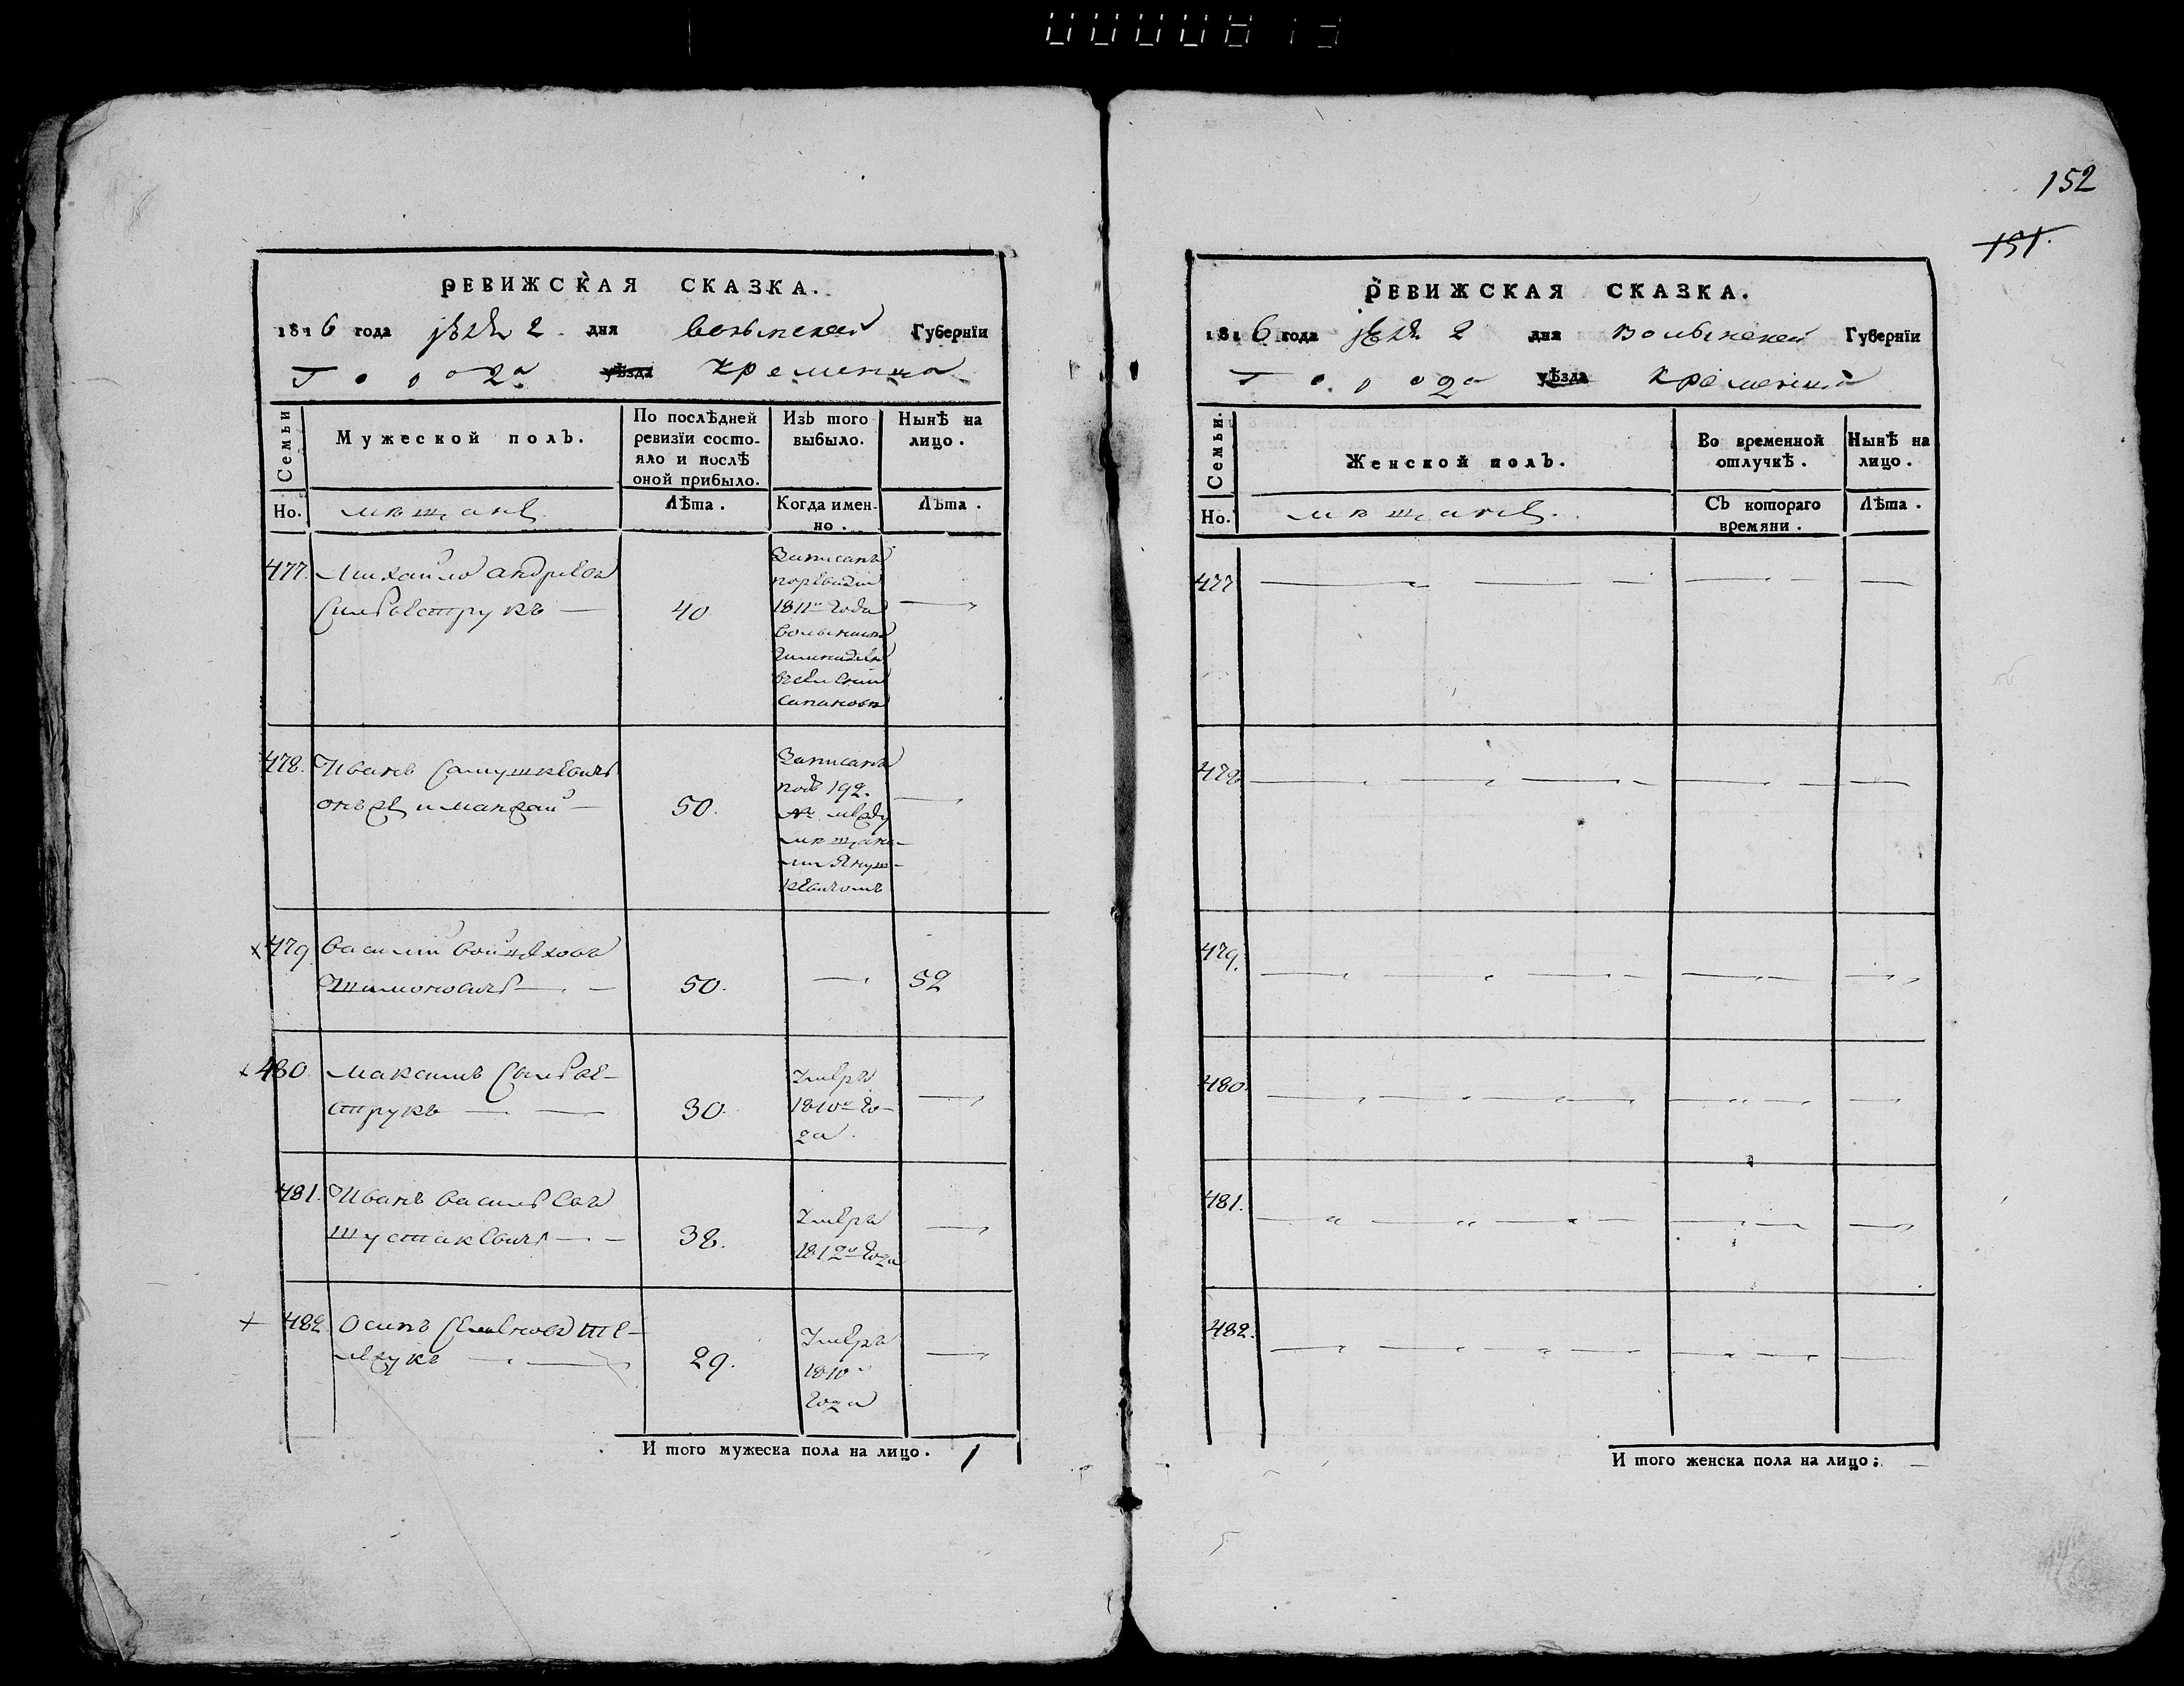 152
151.
РЕВИЖСКАЯ СКАЗКА.
1816 года 2 дня Волынской Губернїи
Города уѣзда Кременца
Семьи
Мужеской полъ.
По послѣдней ревизїи состо-
яло и послѣ
оной прибыло.
Изъ того
выбыло.
Нынѣ на
лицо.
Но.
мѣщане
Лѣта.
Когда имен-
но.
Лѣта.
477. Михайло Андреевъ
Сильвеструкъ —
40.
Записанъ
по ревизіи
1811го Года
—
478. Иванъ
50.
Записанъ
подъ 192.
№ между
мѣщана-
ми Януш-
кевичомъ
—
479 Василий Войцеховъ
Шимоновичъ — —
50.
—
52
480. Максимъ Сильве-
струкъ — —
30.
Умеръ
1810го Го-
да.
—
481. Иванъ Васильевъ
Шустакевичъ — —
38.
Умеръ
1812го Года
—
482. Осипъ Семеновъ
29.
Умеръ
1810го
Года
—
И того мужеска пола на лицо. 1
РЕВИЖСКАЯ СКАЗКА.
1816 года 2 дня Волынской Губернїи
Города уѣзда Кременца
Семьи.
Женской полъ.
Во временной
отлучкѣ.
Нынѣ на
лицо.
Но.
мѣщане
Съ котораго
времяни.
Лѣта.
477
478
479.
480.
481.
482.
И того женска пола на лицо: —